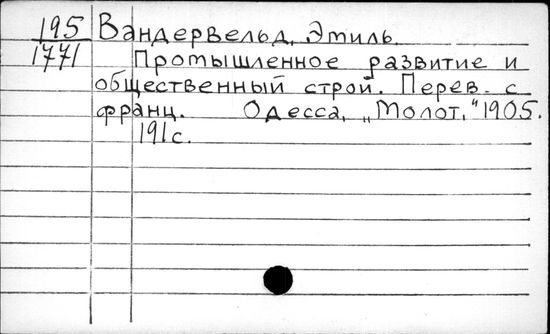 195 Вандервельд, Этиль.
1771 Промышленное развитие и
общественный строй. Перев. с
франц. Одесса, „Молот,“ 1905.
191с.